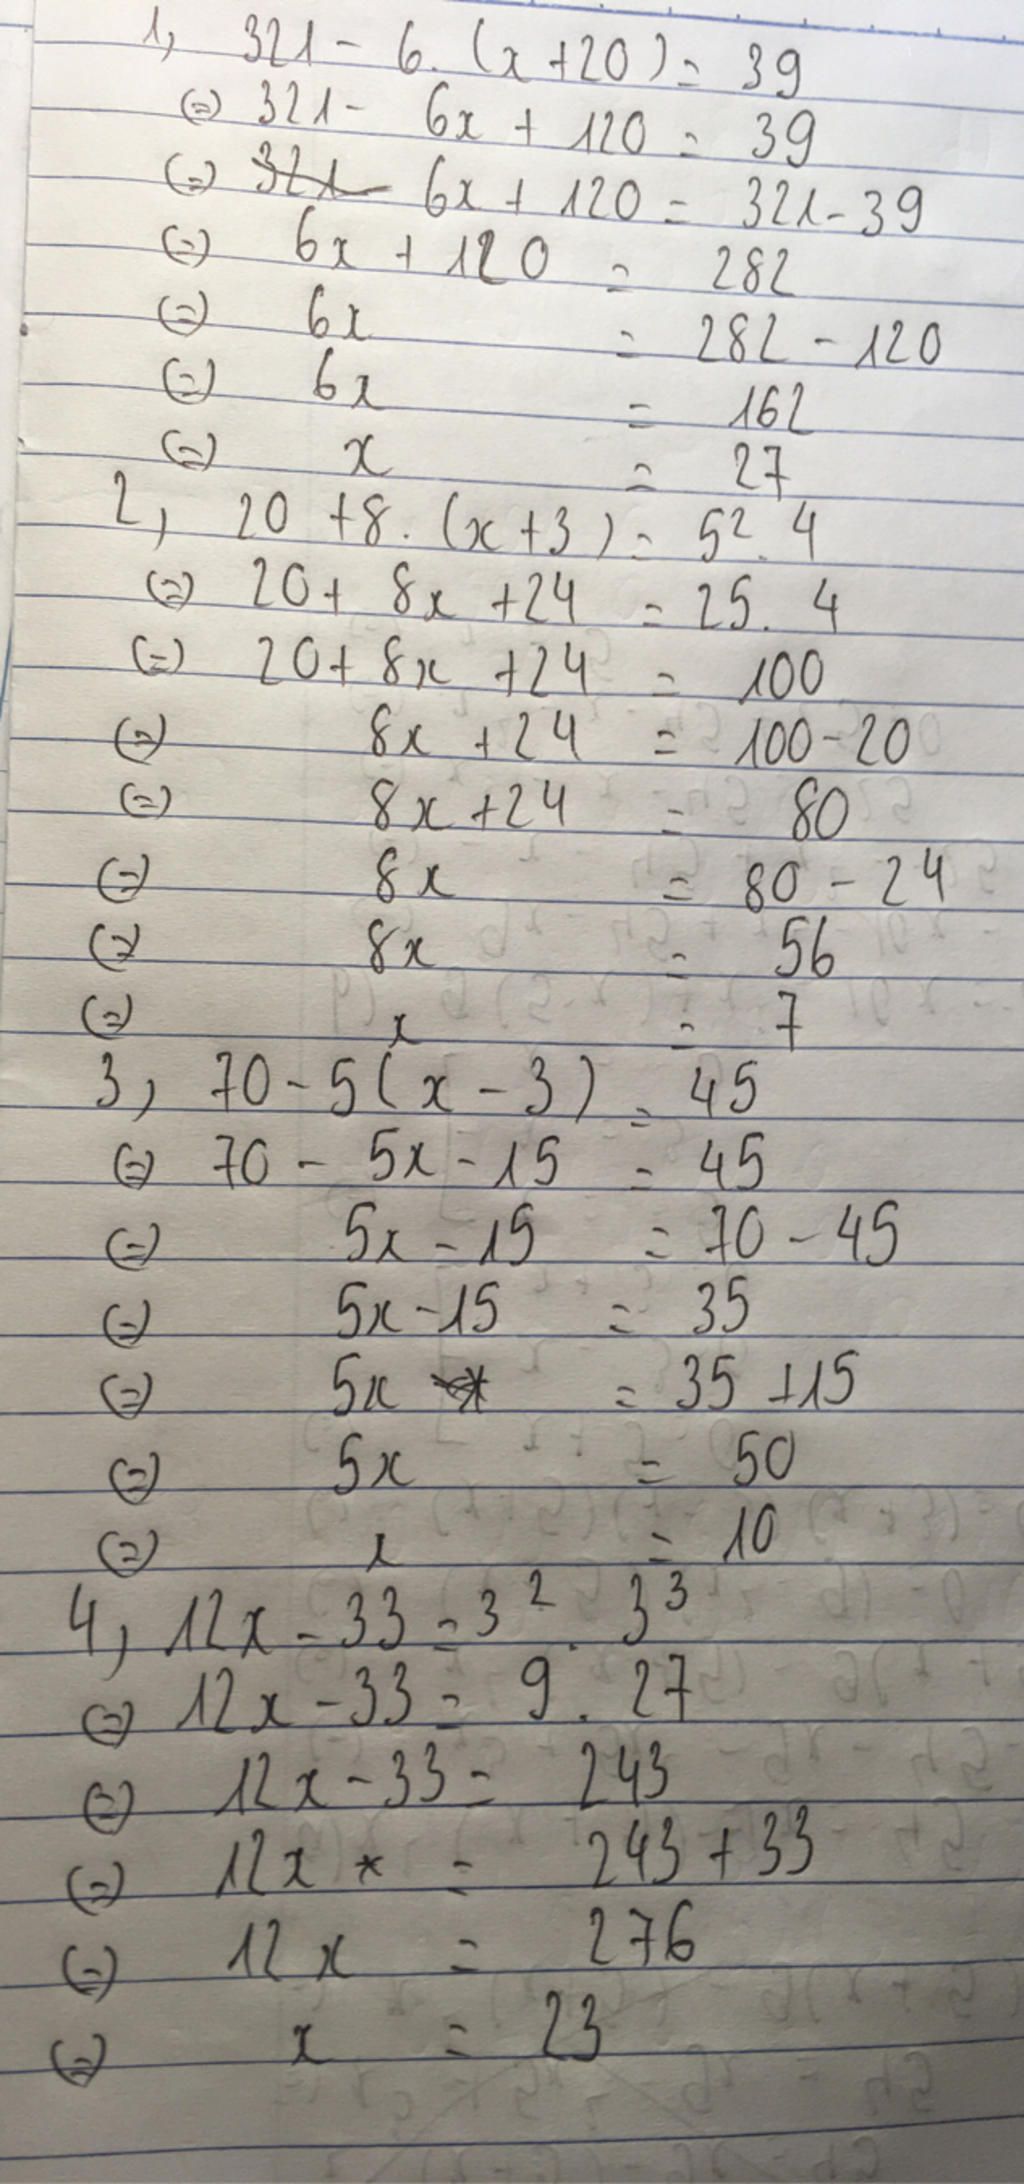 1, 321 - 6. (x+20) = 39
(=) 321 - 6x + 120 = 39
(=) 321 - 6x + 120 = 321 - 39
(=) 6x + 120 = 282
(=) 6x = 282 - 120
(=) 6x = 162
(=) x = 27
2, 20 + 8. (x+3) = 5². 4
(=) 20 + 8x + 24 = 25. 4
(=) 20 + 8x + 24 = 100
(=) 8x + 24 = 100 - 20
(=) 8x + 24 = 80
(=) 8x = 80 - 24
(=) 8x = 56
(=) x = 7
3, 70 - 5(x - 3) = 45
(=) 70 - 5x - 15 = 45
(=) 5x - 15 = 70 - 45
(=) 5x - 15 = 35
(=) 5x = 35 + 15
(=) 5x = 50
(=) x = 10
4, 12x - 33 = 3² . 3³
(=) 12x - 33 = 9 . 27
(=) 12x - 33 = 243
(=) 12x = 243 + 33
(=) 12x = 276
(=) x = 23